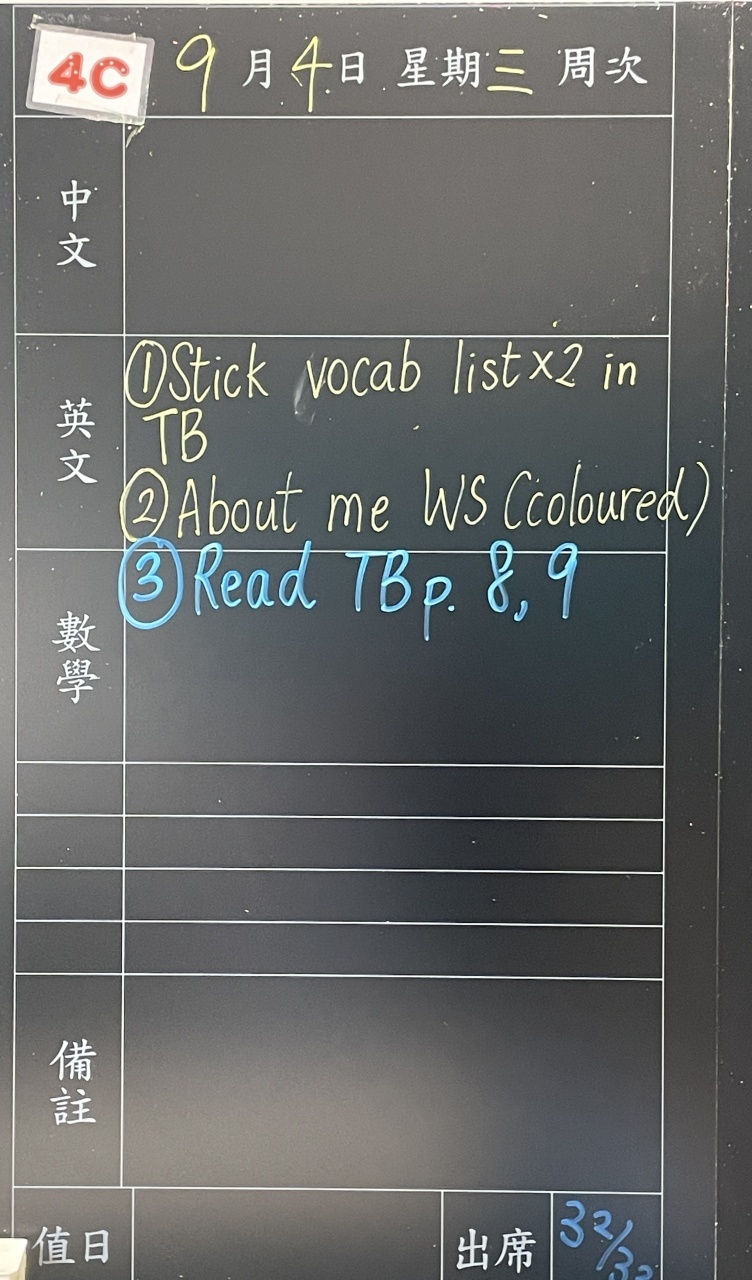 4C 9月4日 星期三 周次
中文
英文
①Stick vocab list x2 in
TB
②About me WS (coloured)
③Read TB p. 8, 9
數學
備註
值日 出席 32/32